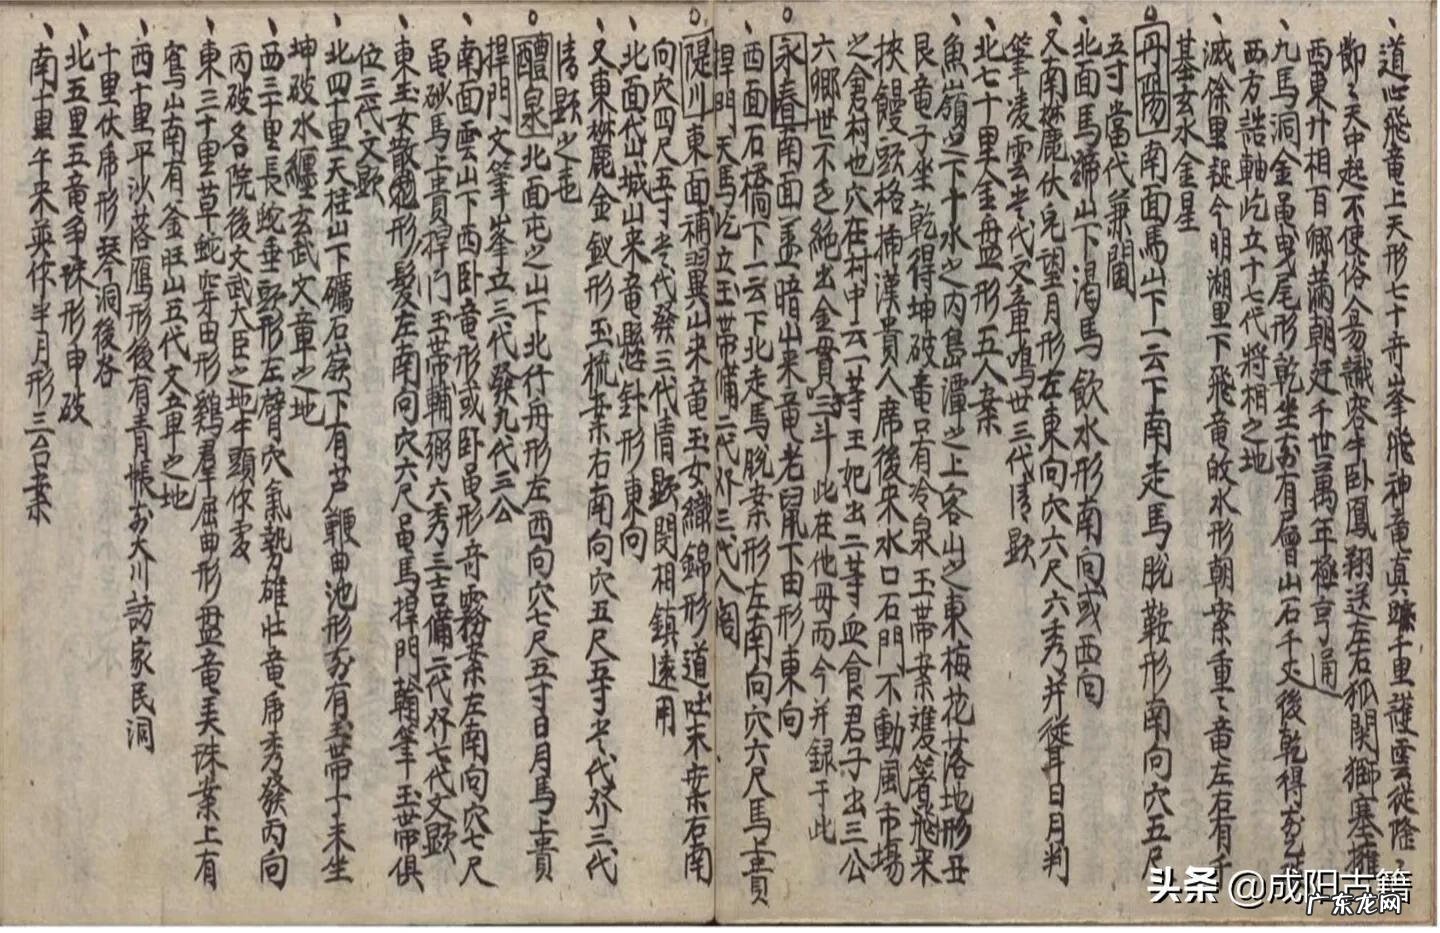 道心飛竜上天形七十奇峯飛神竜真蹤十里護雲從隆ミ
節ミ天中起不使俗人易識容牛卧鳳翔送左右狐関獅塞擁
西東廾相百鄉蕭朝廷千世萬年極亨通
九馬洞金黾曳尾形乾坐前有層山石千丈後乾得
西方誥軸屹立十七代將相之地
減條里
今明湖里下飛竜飲水形朝案重ミ竜左右有千
基玄水金星
丹陽 南面馬山下一云下南走馬脱鞍形南向穴五尺
五寸當代兼閫
北面馬蹄山下渴馬飲水形南向或西向
又南麓伏兎望月形左東向穴六尺六秀并從耳日月判
筆凌雲当代文章鳴世三代清顕
北七十里金盤形五人案
魚嶺山之下十水之内島潭之上客山之東梅花落地形丑
艮竜子坐乾得坤破竜口有冷泉玉帶案難獲箸飛来
挾饅頭格插漢貴人席後案水口石門不動風市場
之倉村也穴在村中云一等王妃出二等血食君子出三公
六鄉世不乏絶出金貫三斗此在他毋而今并録于此
永春 南面
暗山来竜老鼠下田形東向
西面石橋下一云下北走馬脱案形左南向穴六尺馬上貴
捍門天馬屹立玉帶備二代外三代入阁
隄川 東面補翼山来竜玉女織錦形道吐末案右南
向穴四尺五寸当代發三代清顕閔相鎮遠用
北面岱城山来竜懸針形東向
又東麓金釵形玉梳案右南向穴五尺五寸当代外三代
清顕之也
醴泉 北面屯之山下北行舟形左西向穴七尺五寸日月馬上貴
捍門文筆峯立三代發九代三公
南面雲山下西卧竜形或卧黾形奇霧案左南向穴七尺
黾砂馬上貴捍门玉帶輔弼六秀三吉備二代外七代文顕
東玉女散髮形髮左南向穴六尺黾馬捍門翰筆玉帶俱
位三代文顕
北四十里天柱山下礪石嶺下有芦鞭曲池形前有玉帶丁未坐
坤破水纏玄武文章之地
西三十里長蛇垂頭形左臂穴氣勢雄壮竜席秀發丙向
丙破名院後文武大臣之地牛頭作
東三十里草蛇穿田形鷄羣屈曲形盤竜弄珠案上有
鸳山南有釜旺山五代文章之地
西十里平沙落鴈形後有青帳前大川訪家民洞
十里伏席形琴洞後谷
北五里五竜争珠形申破
南十里午来英作半月形三台案
头条 @成阳古籍
广东龙网